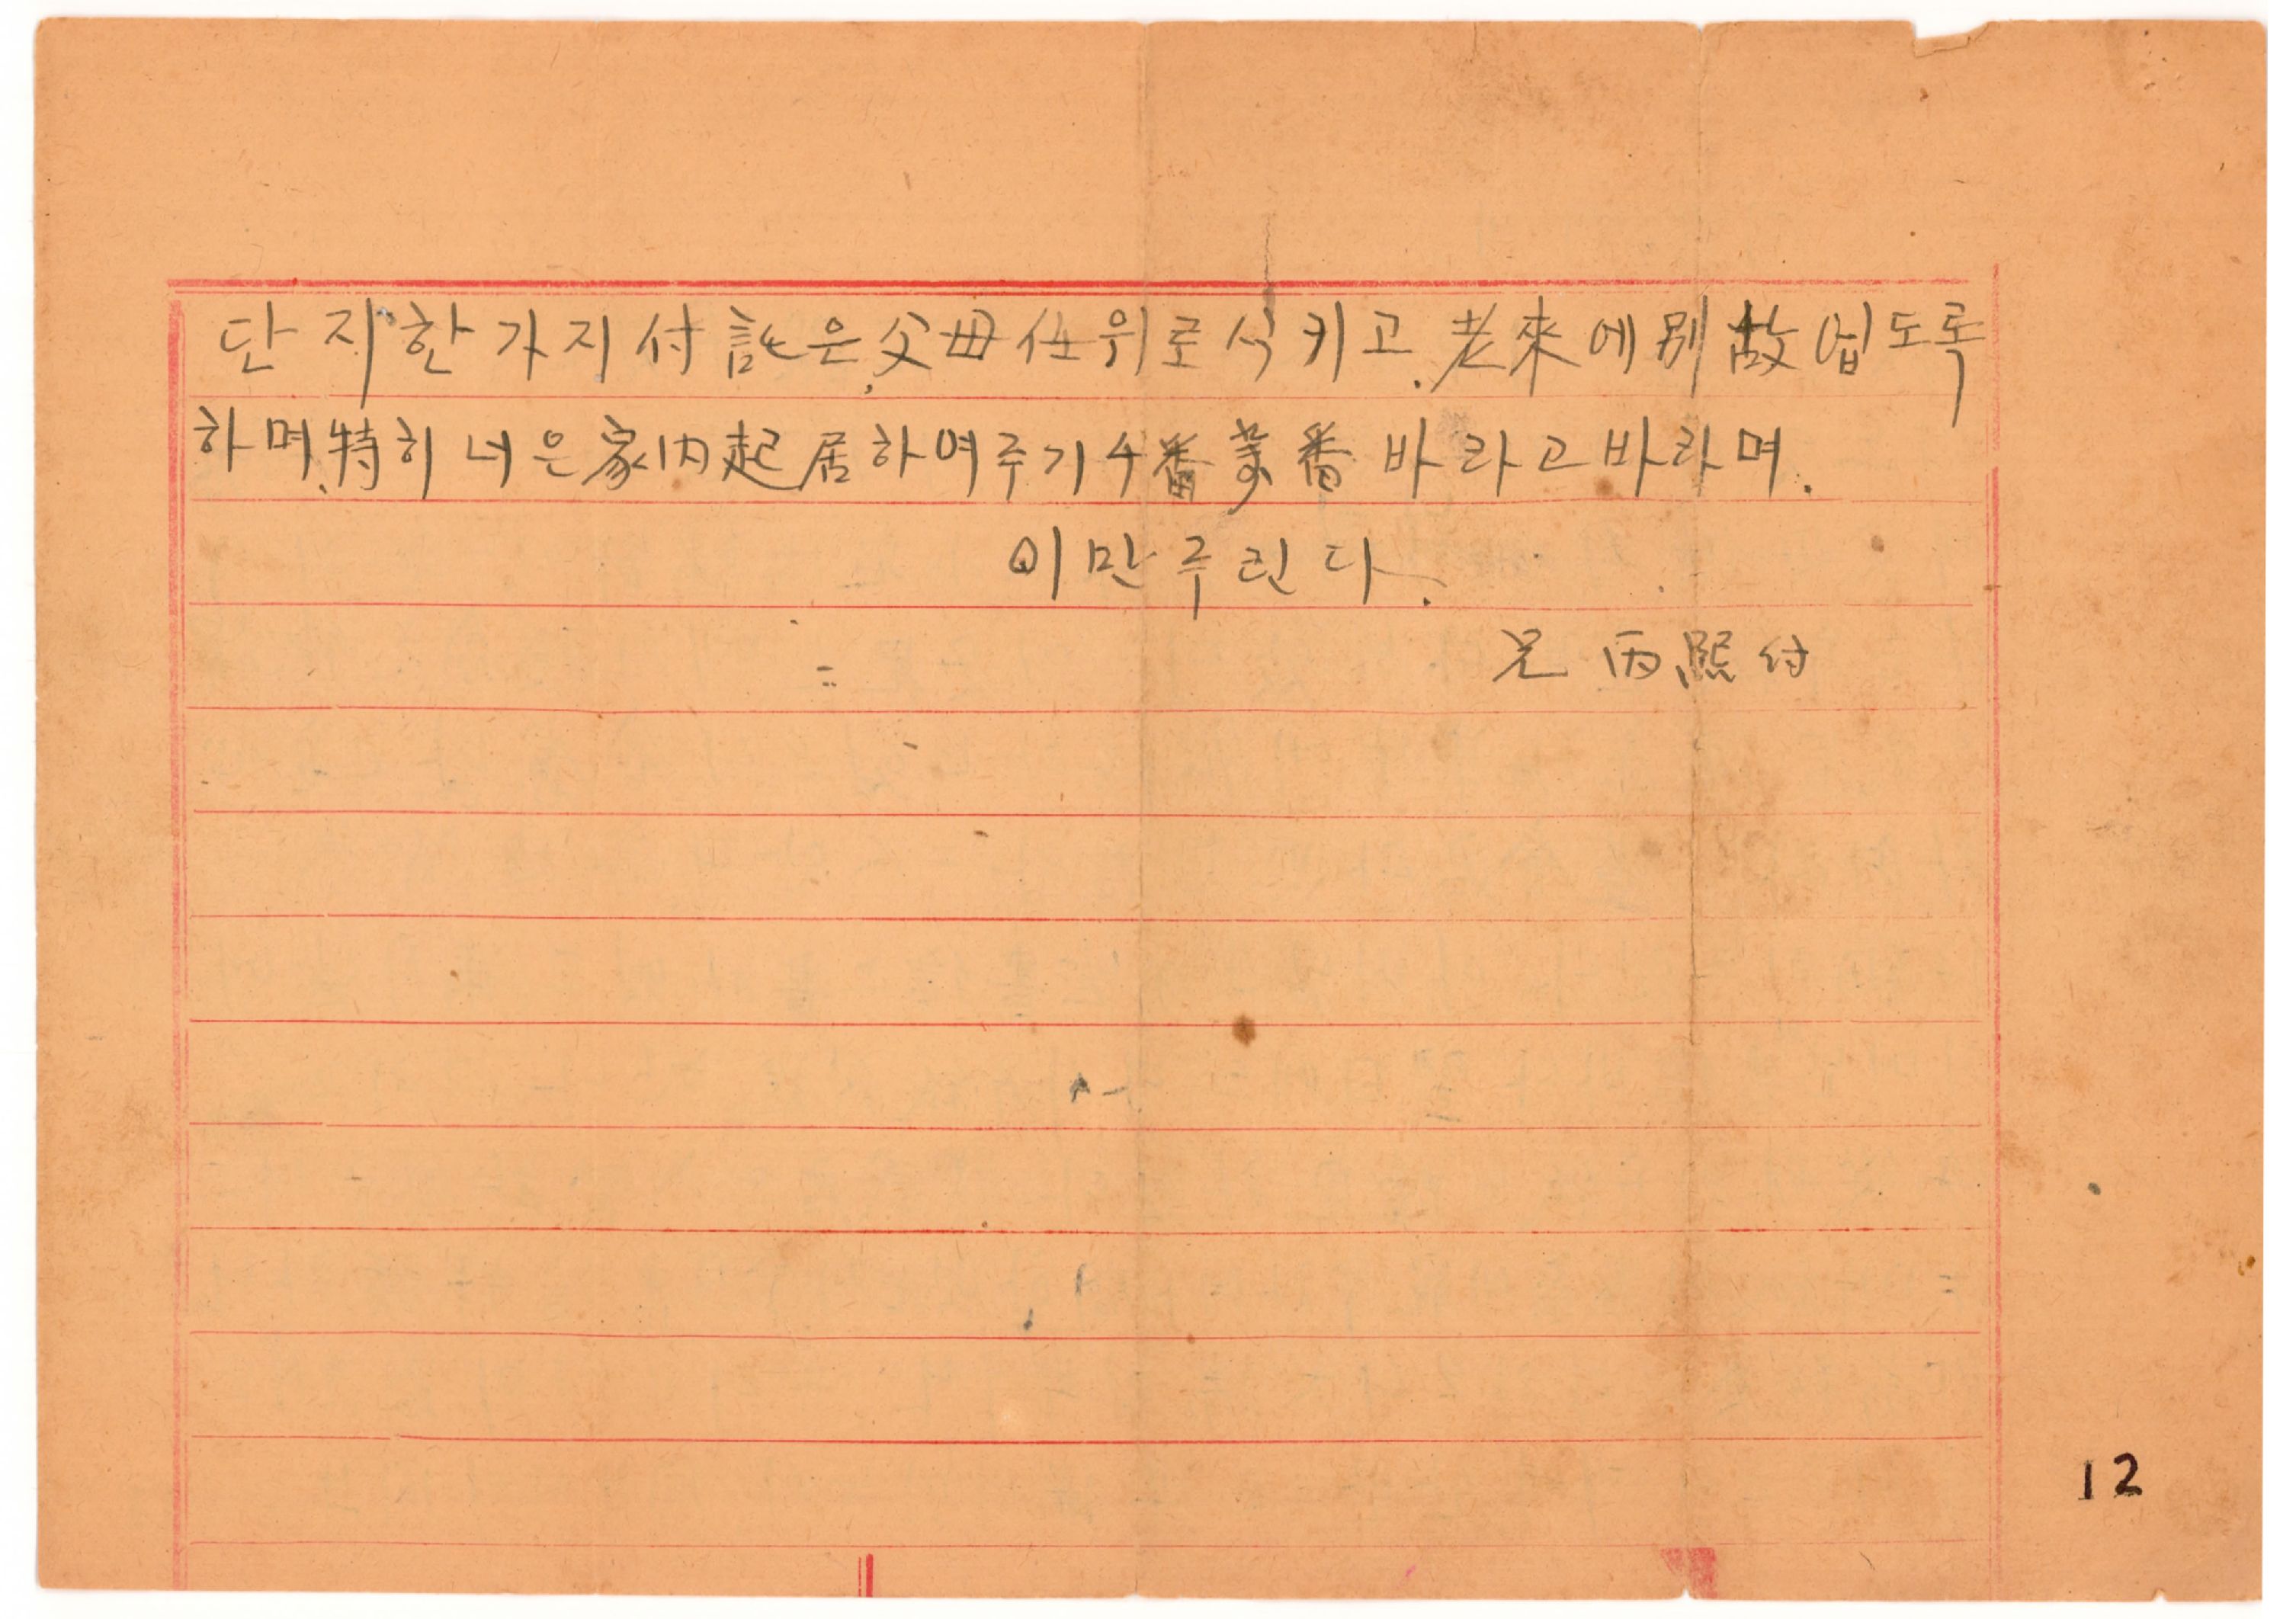 단지 한가지 付託은, 父母任 위로식키고. 老來에 別故 업도록
하며, 特히 너은 家內起居하여주기 千番萬番 바라고바라며.
이만 주린다.
兄 丙熙 付
12